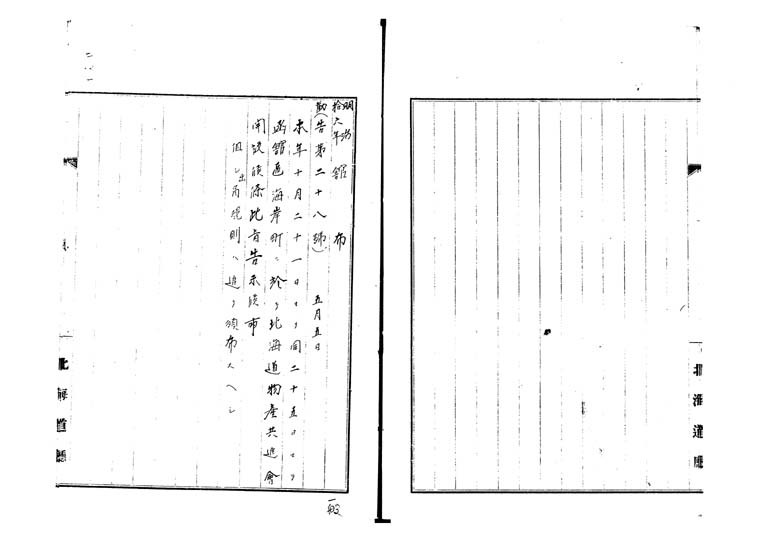 北海道廳
明治
拾六年
舘布
勸(告第二十八號) 五月五日
本年十月二十一日ヨリ同二十五日マテ
函館區海岸町ニ於テ北海道物産共進會
開設候條此旨告示候事
但シ出品規則ハ追テ頒布スヘシ
北海道廳
一般